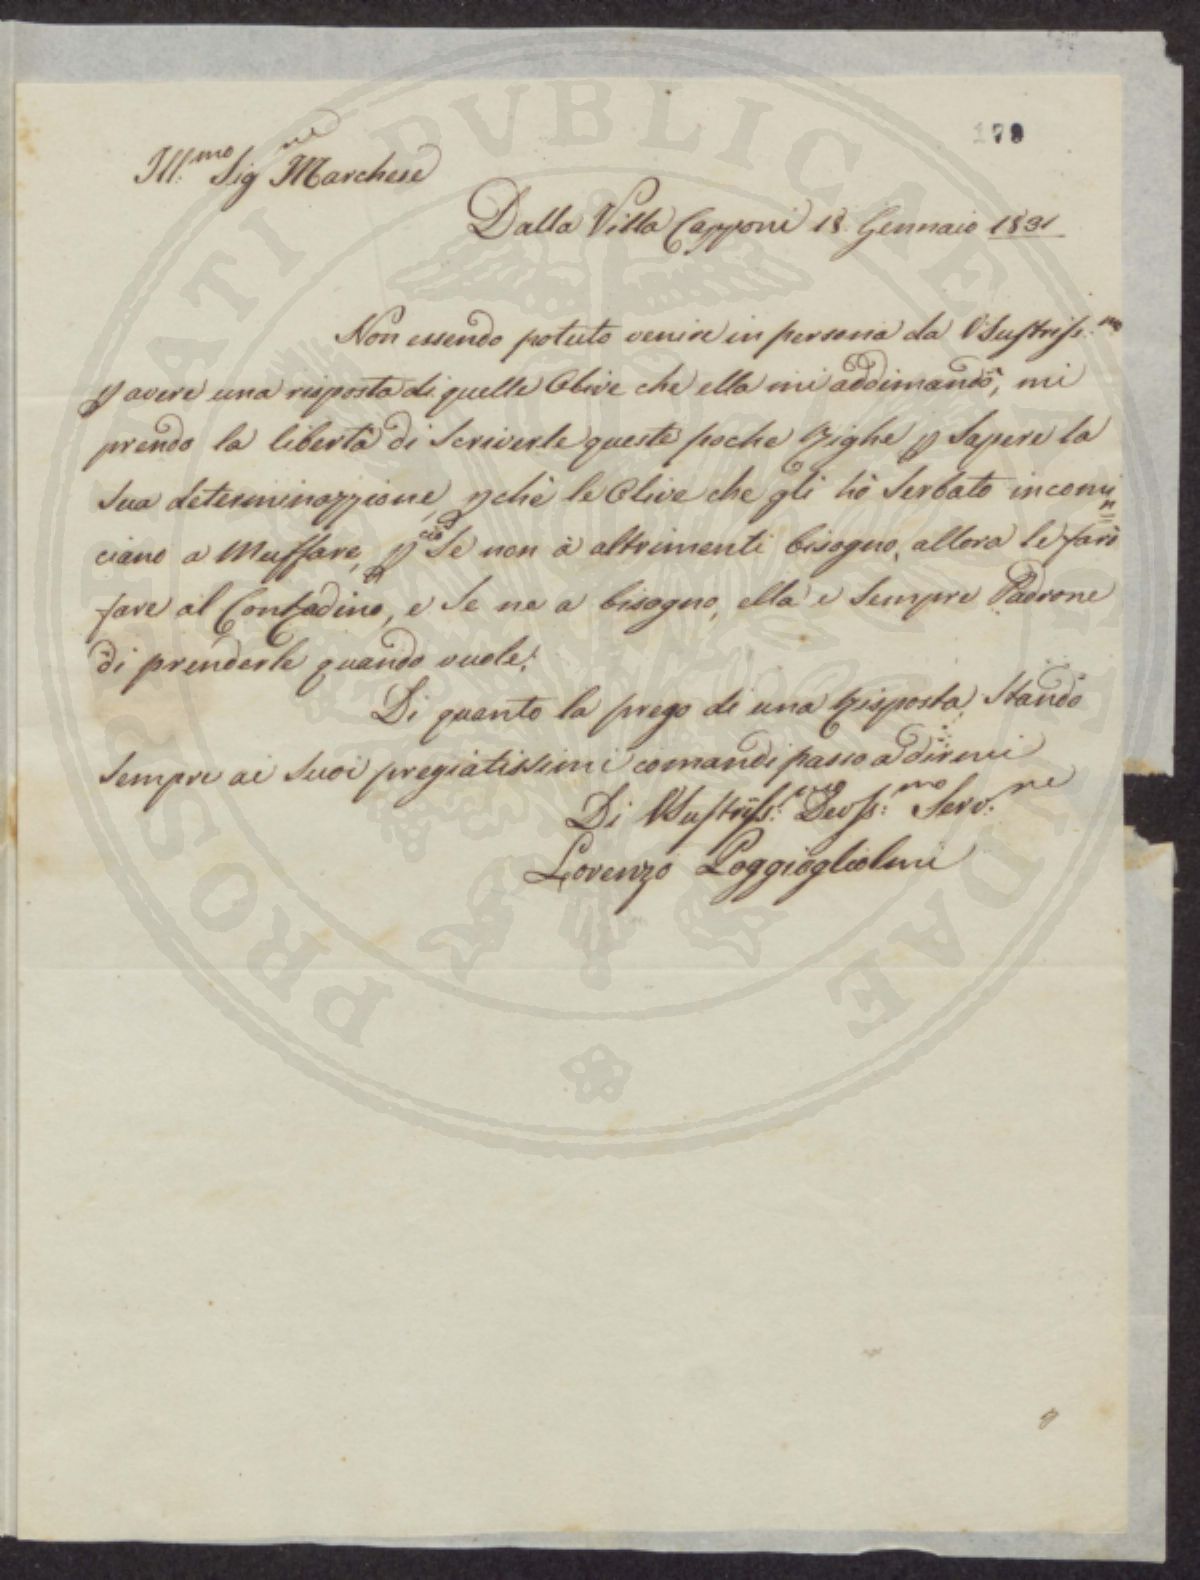 179
Ill:mo Sig.re Marchese
Dalla Villa Capponi 18 Gennaio 1831
Non essendo potuto venire in persona da VSustriss:ma
p avere una risposta di quelle Olive che ella mi addimandò, mi
prendo la libertà di Scriverle queste poche righe p Sapere la
sua determinazzione, pchè le Olive che gli hò Serbato incomin
ciano a Muffare, p ciò Se non à altrimenti bisogno, allora le farò
fare al Contadino, e Se ne a bisogno, ella è Sempre Padrone
di prenderle quando vuole.
Di quanto la prego di una risposta, Stando
Sempre ai Suoi pregiatissimi comandi passo a dirmi
Di VSustriss:ma Devss:mo Serv:re
Lorenzo Poggiogliolmi
PROSPERITATI PVBLICAE AVGENDAE